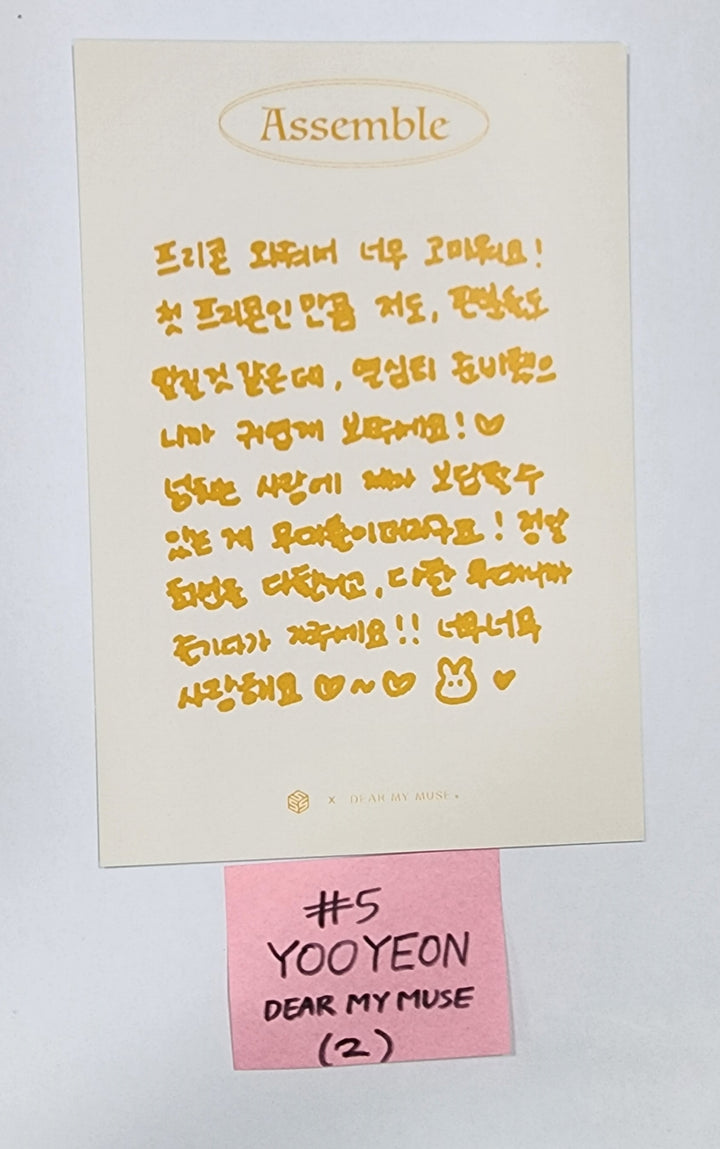 Assemble
프리콘 와줘서 너무 고마워요!
첫 프리콘인 만큼 저도, 팬분들도
떨릴 것 같은데, 열심히 준비했으
니까 귀엽게 봐주세요! ♡
넘치는 사랑에 제가 보답할 수
있는 게 무대뿐이더라구요! 정말
최선을 다할거고, 다한 무대니까
즐기다가 가주세요!! 너무너무
사랑해요 ♡~♡ ♥
x DEAR MY MUSE.
#5
YOOYEON
DEAR MY MUSE
(2)